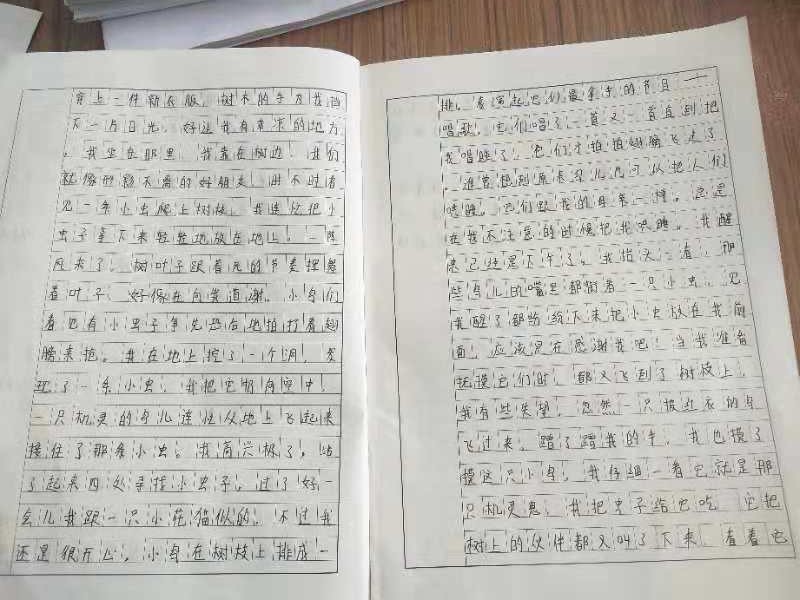 穿上一件新衣服，树木的手为我当
下一片日光，好这我有本来的地方
，我坐在那里，我靠在树边，我们
就像形影不离的好朋友，时不时看
见一条小虫爬上树枝，我连忙把小
虫子拿下来轻轻地放在地上。一阵
风来了，树叶子跟着风的节奏挥舞
着叶子，好像在向我道谢。小鸟们
看见有小虫子争先恐后地拍打着翅
膀来抢。我在地上挖了一个洞，发
现了一条小虫，我把它扔向空中，
一只机灵的鸟儿连忙从地上飞起来
接住了那条小虫。我高兴极了，站
了起来四处寻找小虫子，过了好一
会儿我跟一只小花猫似的，不过我
还是很开心，小鸟在树枝上排成一
排，表演起它们最拿手的节目——
唱歌，它们唱了一首又一首直到把
我唱睡了，它们才拍拍翅膀飞走了
，谁曾想到原来鸟儿也可以把人们
哄睡。它们跟我的母亲一样，总是
在我不注意的时候把我哄睡。我醒
来已经是下午了，我抬头一看，那
些鸟儿的嘴里都衔着一只小虫，见
我醒了都纷纷下来把小虫放在我前
面，应该是在感谢我吧！当我准备
抚摸它们时，都又飞到了树枝上，
我有些失望，忽然一只披红衣的鸟
飞过来，蹭了蹭我的手，我也摸了
摸这只小鸟，我仔细一看它就是那
只机灵鬼，我把虫子给它吃，它把
树上的伙伴都又叫了下来，看着它